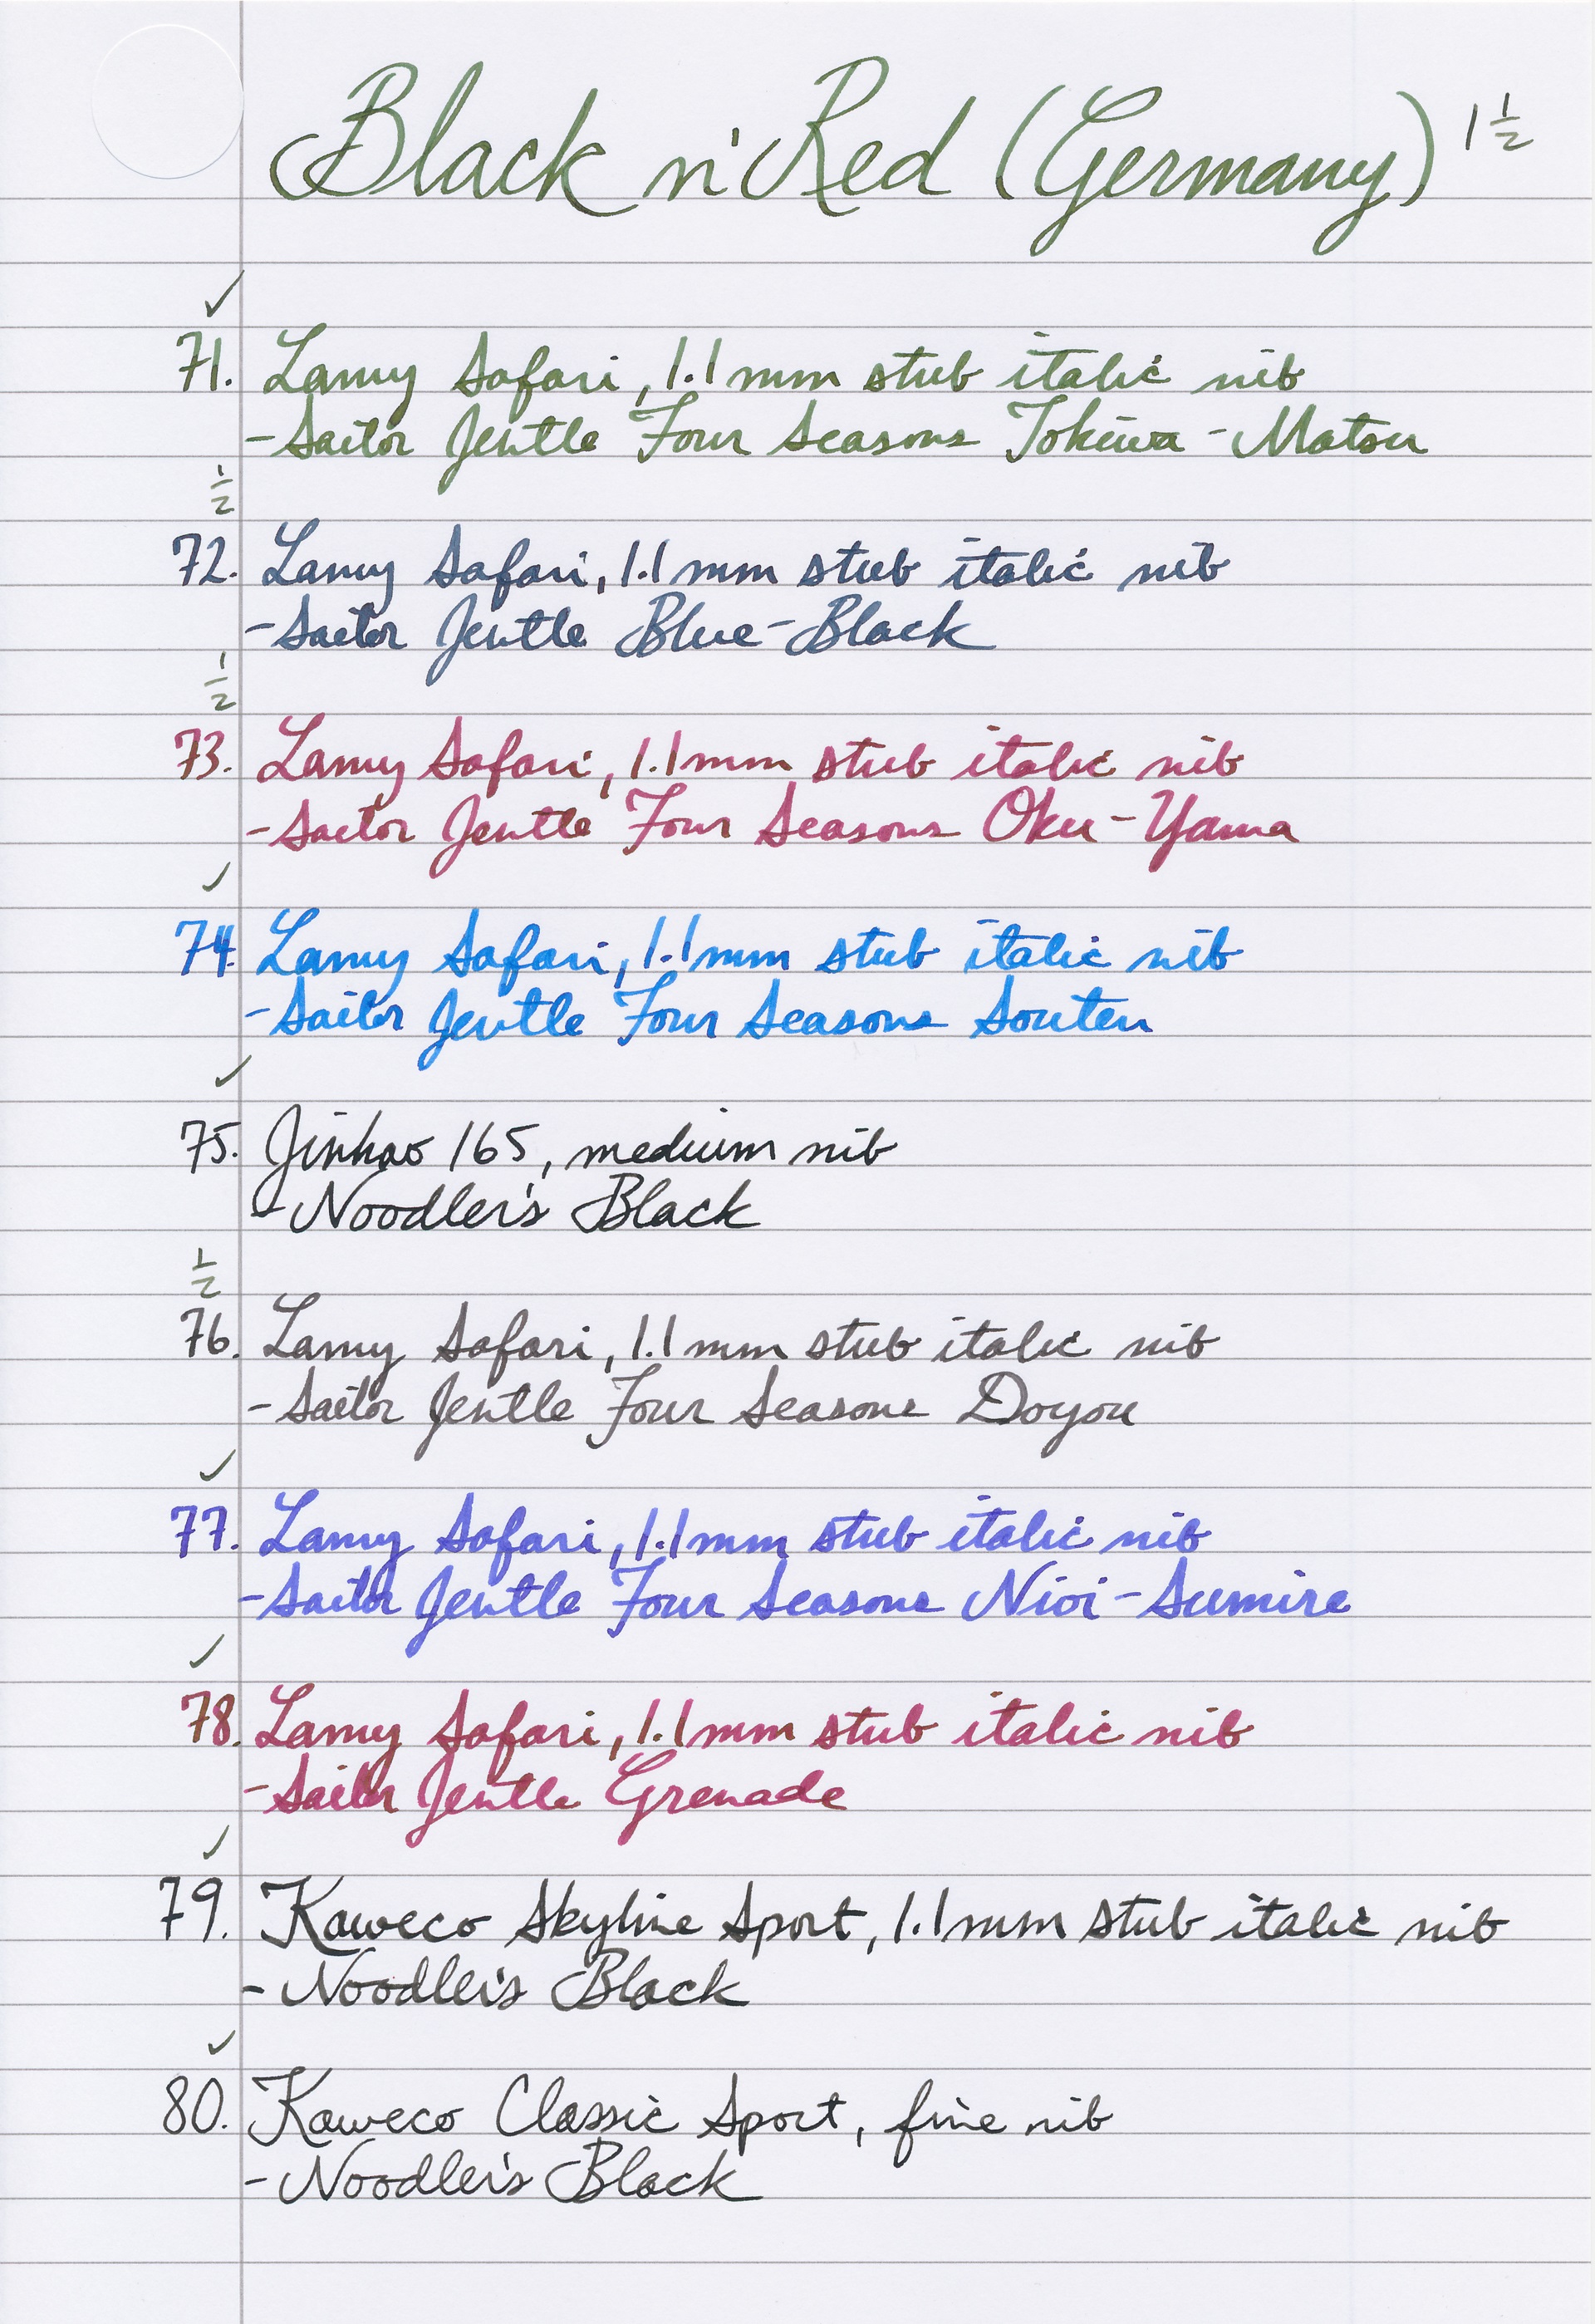 Black n' Red (Germany) 1 1/2
✓
71. Lamy Safari, 1.1mm stub italic nib
-Sailor Jentle Four Seasons Tokiwa-Matsu
1/2
72. Lamy Safari, 1.1mm stub italic nib
-Sailor Jentle Blue-Black
1/2
73. Lamy Safari, 1.1mm stub italic nib
-Sailor Jentle Four Seasons Oku-Yama
✓
74. Lamy Safari, 1.1mm stub italic nib
-Sailor Jentle Four Seasons Souten
✓
75. Jinhao 165, medium nib
-Noodler's Black
1/2
76. Lamy Safari, 1.1mm stub italic nib
-Sailor Jentle Four Seasons Doyou
✓
77. Lamy Safari, 1.1mm stub italic nib
-Sailor Jentle Four Seasons Nioi-Sumire
✓
78. Lamy Safari, 1.1mm stub italic nib
-Sailor Jentle Grenade
✓
79. Kaweco Skyline Sport, 1.1mm stub italic nib
-Noodler's Black
✓
80. Kaweco Classic Sport, fine nib
-Noodler's Black